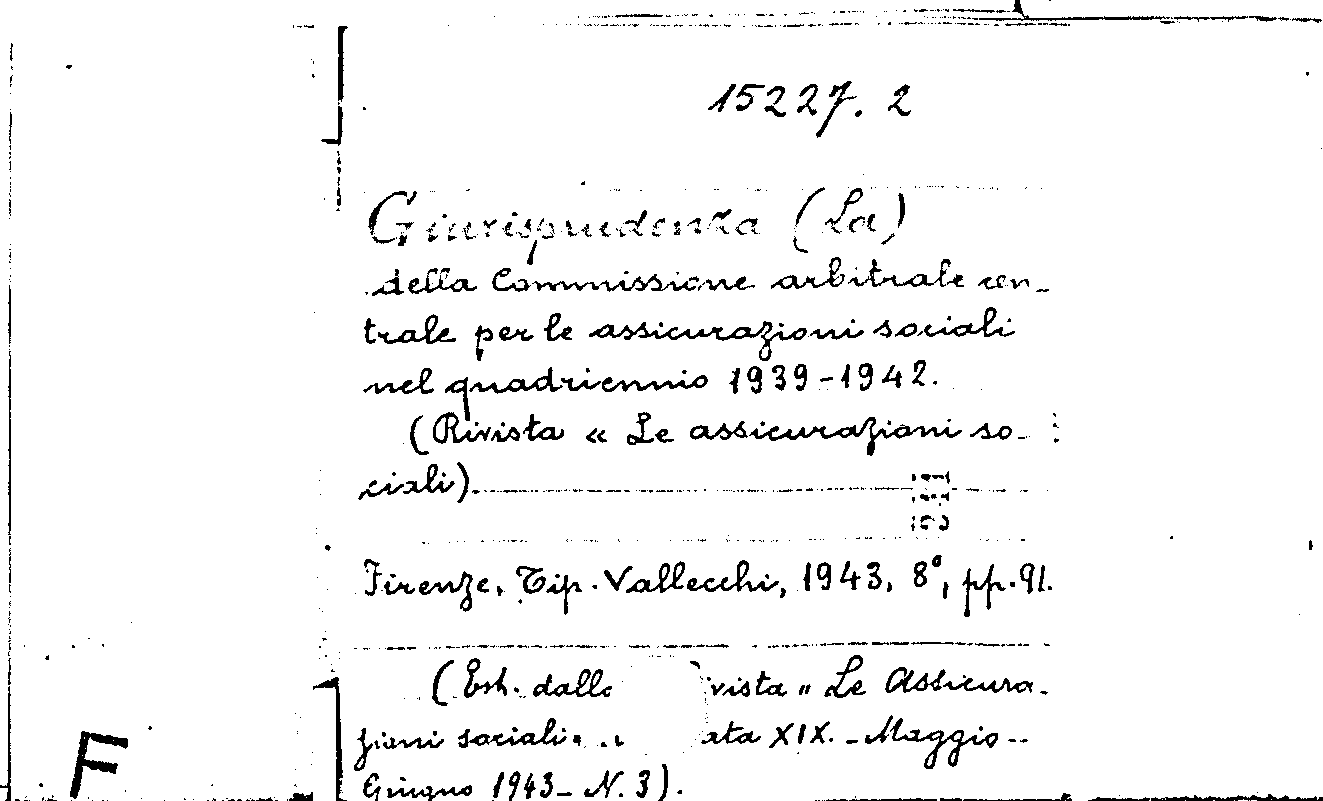 15227. 2
Giurisprudenza (La)
della Commissione arbitrale cen-
trale per le assicurazioni sociali
nel quadriennio 1939-1942.
(Rivista « Le assicurazioni so-
ciali).
Firenze, Tip. Vallecchi, 1943, 8°, pp. 91.
(Est. dalla vista " Le Assicura-
zioni sociali" ata XIX. - Maggio -
Giugno 1943 - N. 3).
F